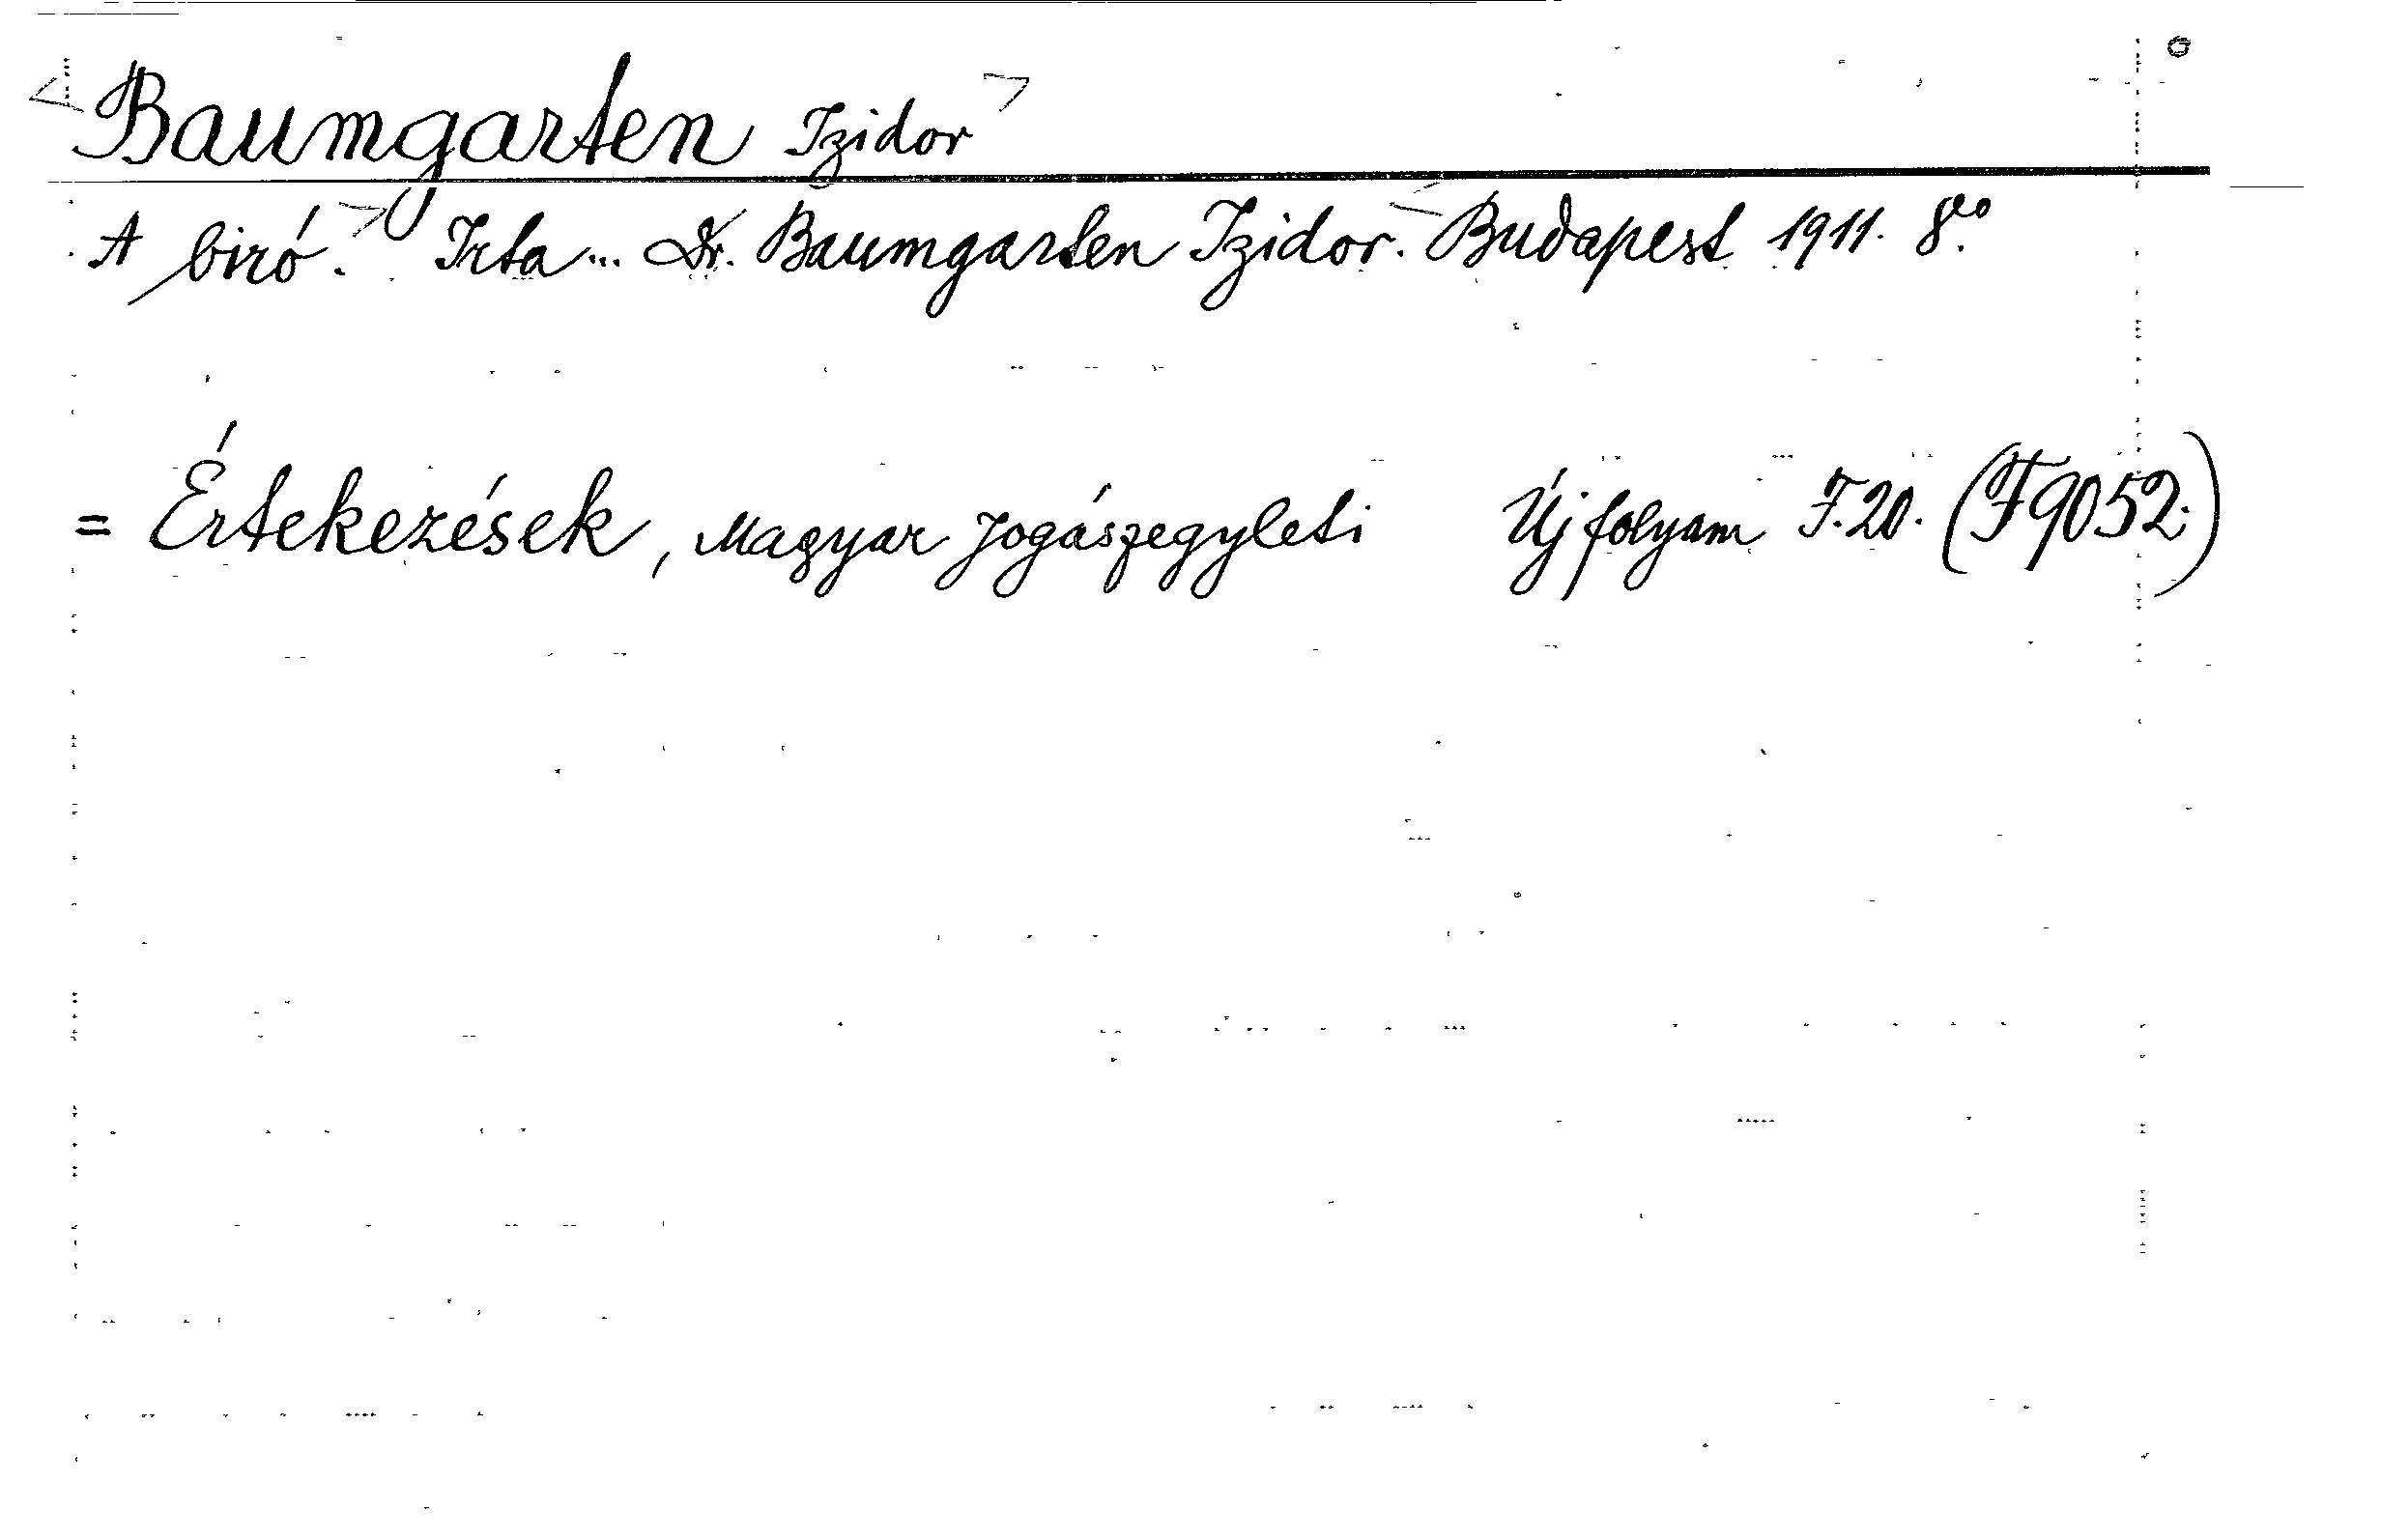 <Baumgarten Izidor>
A biró.> Irta... Dr. Baumgarten Izidor. <Budapest 1911. 8ᵒ.
= Értekezések, Magyar Jogászegyleti Új folyam F.20. (F9052.)